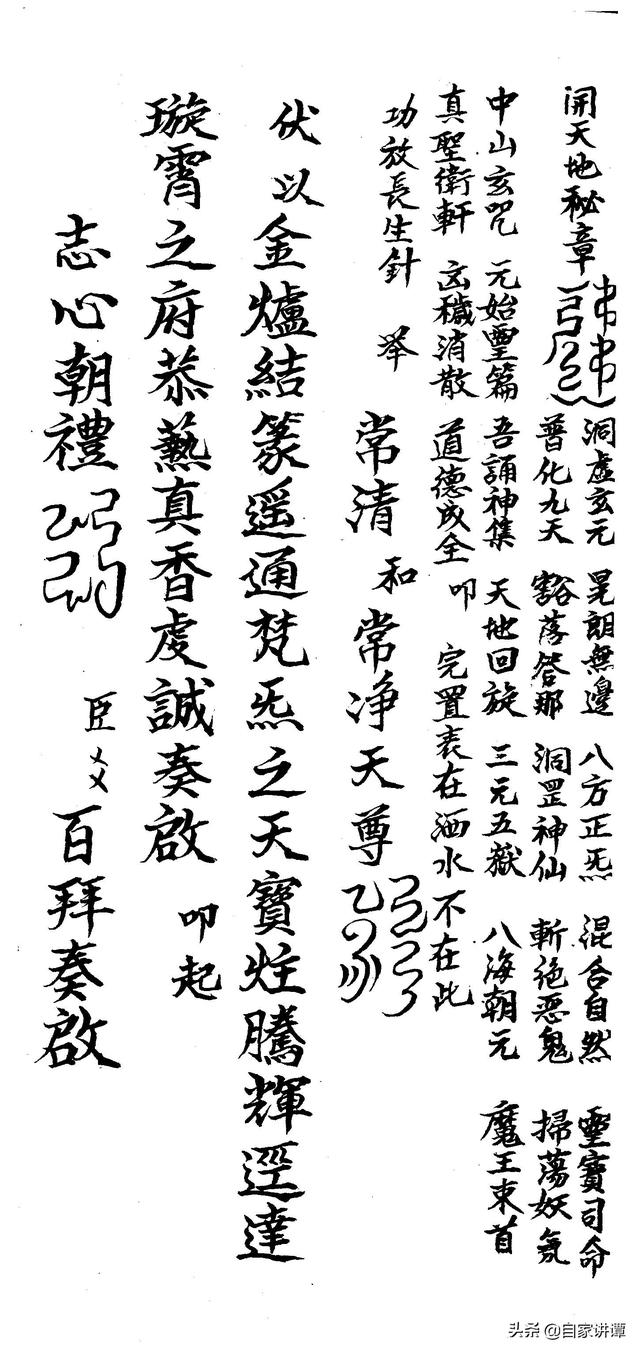 開天地秘章
洞虛玄元 晃朗無邊 八方正炁 混合自然 靈寶司命
普化九天 豁落答那 洞罡神仙 斬絶惡鬼 掃蕩妖氛
中山玄咒 元始靈篇 吾誦神集 天地回旋 三元五嶽 八海朝元 魔王束首
真聖衛軒 凶穢消散 道德成全 叩 完置表在洒水不在此
功放長生針 举 常清和常净天尊
伏以金爐結篆遥通梵炁之天寶炷騰輝逕達
璇霄之府恭爇真香虔誠奏啟 叩起
志心朝禮 臣 百拜奏啟
头条 @自家讲谭